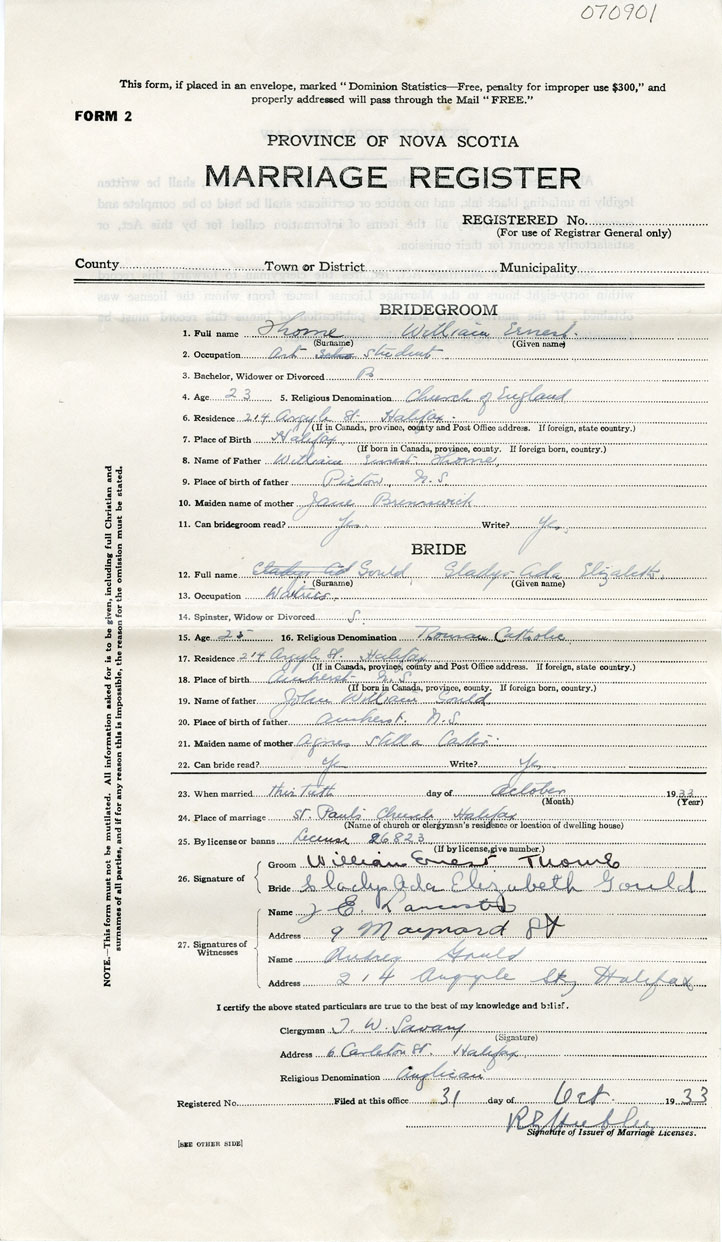 070901
This form, if placed in an envelope, marked "Dominion Statistics—Free, penalty for improper use $300," and
properly addressed will pass through the Mail "FREE."
FORM 2
PROVINCE OF NOVA SCOTIA
MARRIAGE REGISTER
REGISTERED No.
(For use of Registrar General only)
County Town or District Municipality
BRIDEGROOM
1. Full name Thome William Ernest.
(Surname) (Given name)
2. Occupation Art student
3. Bachelor, Widower or Divorced B
4. Age 23 5. Religious Denomination Church of England
6. Residence 214 Argyle St. Halifax.
(If in Canada, province, county and Post Office address. If foreign, state country.)
7. Place of Birth Halifax
(If born in Canada, province, county. If foreign born, country.)
8. Name of Father William Ernest Thome
9. Place of birth of father Pictou, N.S.
10. Maiden name of mother Jane Brennwick
11. Can bridegroom read? Yes. Write? Yes.
BRIDE
12. Full name Gould, Gladys Ada Elizabeth.
(Surname) (Given name)
13. Occupation Waitress.
14. Spinster, Widow or Divorced S.
15. Age 25 16. Religious Denomination Roman Catholic
17. Residence 214 Argyle St. Halifax
(If in Canada, province, county and Post Office address. If foreign, state country.)
18. Place of birth Amherst N.S.
(If born in Canada, province, county. If foreign born, country.)
19. Name of father John William Gould
20. Place of birth of father Amherst. N.S.
21. Maiden name of mother Agnes Stella
22. Can bride read? Yes Write? Yes
23. When married this day of October 1933
(Month) (Year)
24. Place of marriage St. Paul's Church, Halifax
(Name of church or clergyman's residence or location of dwelling house)
25. By license or banns License 26823
(If by license, give number.)
26. Signature of Groom William Ernest Thome
Bride Gladys Ada Elizabeth Gould
27. Signatures of Witnesses
Name J E.
Address 9 Maynard St
Name Aubrey Gould
Address 214 Argyle St, Halifax
I certify the above stated particulars are true to the best of my knowledge and belief.
Clergyman T. W. Savary
(Signature)
Address 6 Carleton St. Halifax
Religious Denomination Anglican
Registered No. Filed at this office 31 day of Oct. 1933
Signature of Issuer of Marriage Licenses.
[SEE OTHER SIDE]
NOTE.—This form must not be mutilated. All information asked for is to be given, including full Christian and
surnames of all parties, and if for any reason this is impossible, the reason for the omission must be stated.